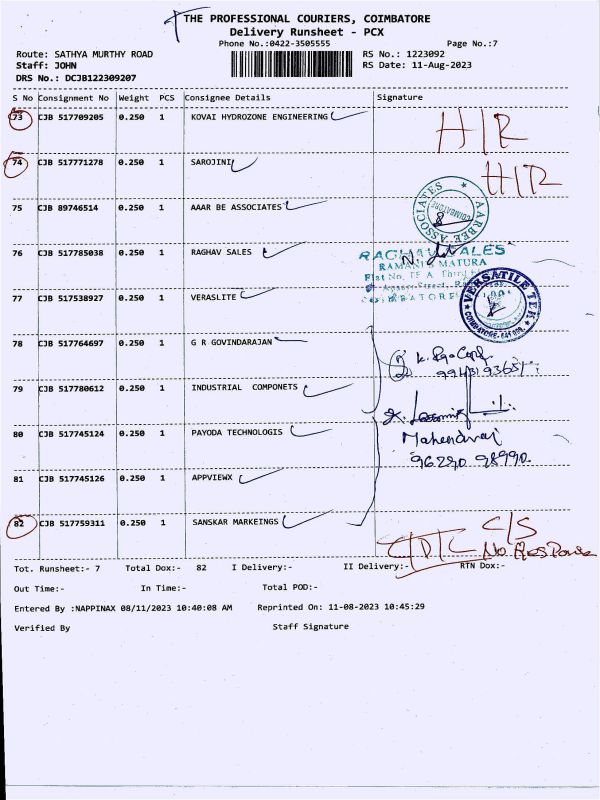 THE PROFESSIONAL COURIERS, COIMBATORE
Delivery Runsheet - PCX
Phone No.:0422-3505555
Page No.:7
Route: SATHYA MURTHY ROAD
RS No.: 1223092
Staff: JOHN
RS Date: 11-Aug-2023
DRS No.: DCJB122309207
S No Consignment No Weight PCS Consignee Details Signature
73 CJB 517709205 0.250 1 KOVAI HYDROZONE ENGINEERING H/R
74 CJB 517771278 0.250 1 SAROJINI H/R
75 CJB 89746514 0.250 1 AAAR BE ASSOCIATES
AARBEE ASSOCIATES
COIMBATORE
76 CJB 517785038 0.250 1 RAGHAV SALES
RAGHAV SALES
RAMANI MATURA
Flat No.
77 CJB 517538927 0.250 1 VERASLITE
VERSATILE
COIMBATORE
78 CJB 517764697 0.250 1 G R GOVINDARAJAN
79 CJB 517780612 0.250 1 INDUSTRIAL COMPONETS
80 CJB 517745124 0.250 1 PAYODA TECHNOLOGIS
96290 98990
81 CJB 517745126 0.250 1 APPVIEWX
82 CJB 517759311 0.250 1 SANSKAR MARKEINGS C/S
No ResPonse
Tot. Runsheet:- 7 Total Dox:- 82 I Delivery:- II Delivery:- RTN Dox:-
Out Time:- In Time:- Total POD:-
Entered By :NAPPINAX 08/11/2023 10:40:08 AM Reprinted On: 11-08-2023 10:45:29
Verified By Staff Signature